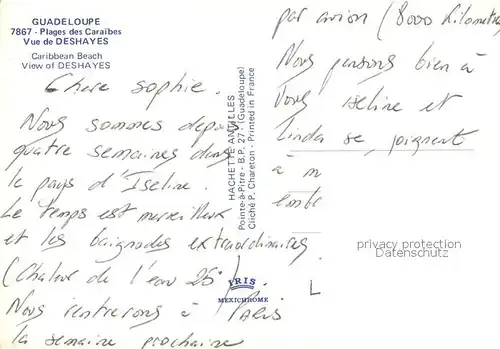 GUADELOUPE
7867 - Plages des Caraïbes
Vue de DESHAYES
Caribbean Beach
View of DESHAYES
Chère Sophie.
Nous sommes depuis
quatre semaines dans
le pays d'Iseline.
Le temps est merveilleux
et les baignades extraordinaires
(Chaleur de l'eau 25°).
Nous rentrerons à PARIS
la semaine prochaine
HACHETTE ANTILLES
Pointe-à-Pitre - B.P. 27 - (Guadeloupe)
Cliché P. Chareton - Printed in France
IRIS
MEXICHROME
par avion (8000 Kilometre
Nous pensons bien à
Vous Iseline et
Linda se joignent
à m
embr
privacy protection
Datenschutz
L